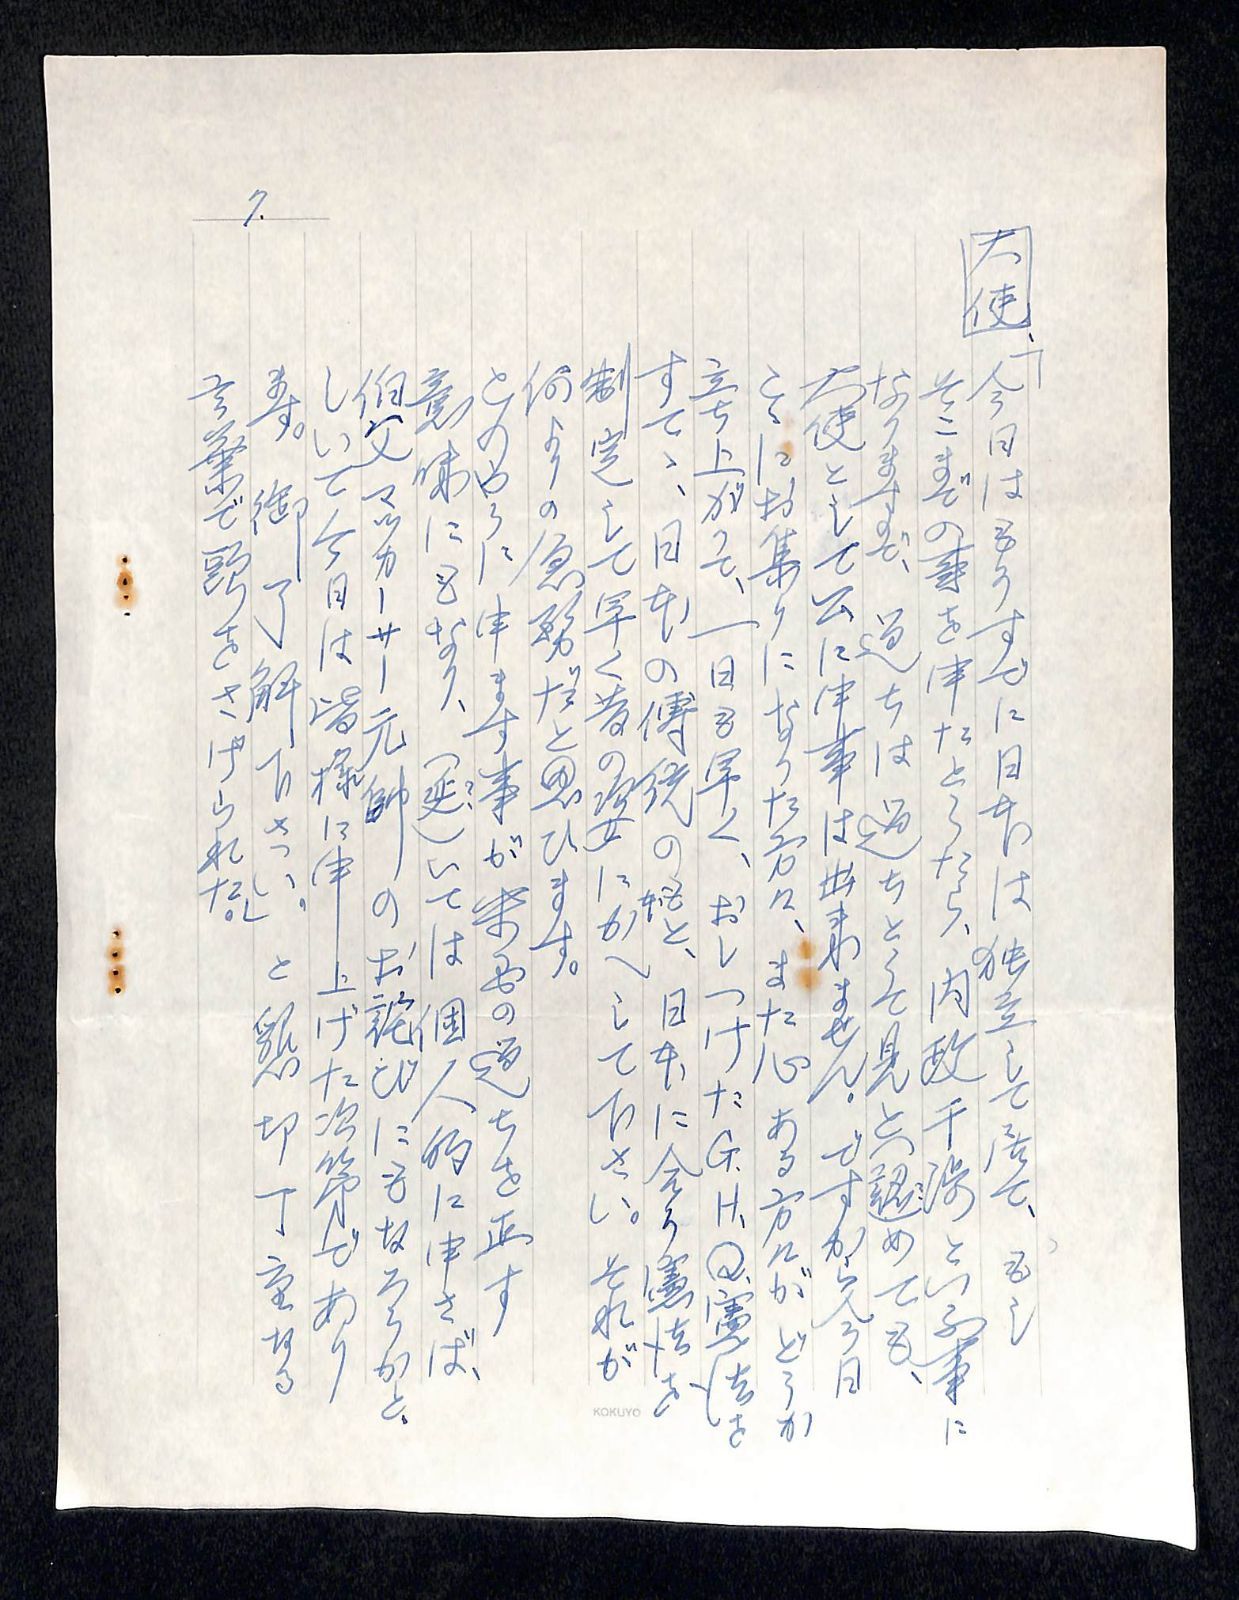 7.
大使
「今日はもうすでに日本は独立して居て、もし
そこまでの事を申たとしたら、内政干渉といふ事に
なりますで、過ちは過ちとして見と認めても、
大使として公に申事は出来ません。ですから今日
こゝにお集りになった方々、また心ある方々がどうか
立ち上がって、一日も早く、おしつけたG.H.Q.憲法を
すてゝ、日本の傳統のもと、日本に合う憲法を
制定して早く昔の姿にかへして下さい。それが
何よりの急務だと思ひます。
とのように申ます事が米の過ちを正す
意味にもなり、(延)いては個人的に申さば、
伯父マッカーサー元帥のお詫びにもなろうかと、
しいて今日は皆様に申上げた次第であり
ます。御了解下さい。と懇切丁重なる
言葉で頭をさげられた。」
KOKUYO